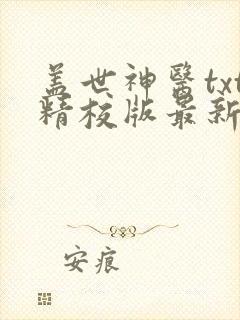 盖世神醫txt
精校版最新
安痕